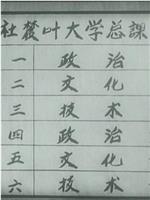 社㪨叶大学总課
一 政治
二 文化
三 技术
四 政治
五 文化
六 技术